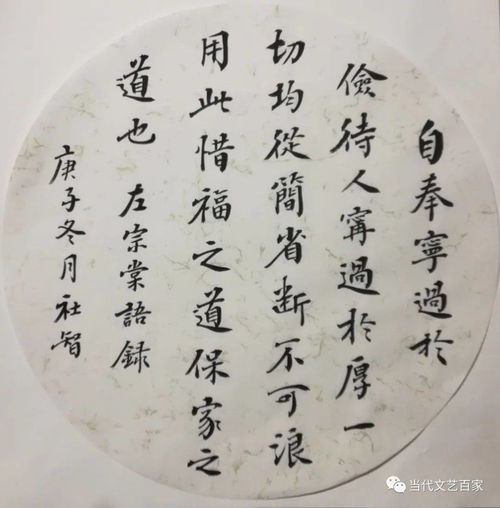 自奉寧過於
儉待人寗過於厚一
切均從簡省斷不可浪
用此惜福之道保家之
道也 左宗棠語録
庚子冬月社智
当代文艺百家